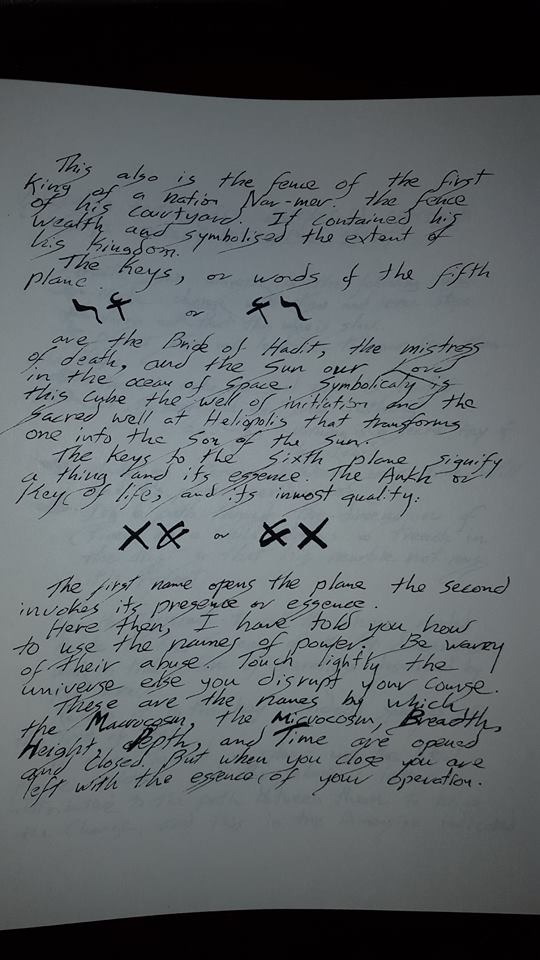 This also is the fence of the first
King of a nation Nar-mer. the fence
of his courtyard. It contained his
wealth and symbolised the extent of
his kingdom.
The Keys, or words of the fifth
plane.
or
are the Bride of Hadit, the mistress
of death, and the Sun our Lord
in the ocean of Space. Symbolicaly is
this cube the well of initiation and the
sacred well at Heliopolis that transforms
one into the Son of the Sun.
The Keys to the sixth plane signify
a thing and its essence. The Ankh or
Key of life, and its inmost quality:
or
The first name opens the plane the second
invokes its presence or essence.
Here then, I have told you how
to use the names of power. Be warey
of their abuse. Touch lightly the
universe else you disrupt your course.
These are the names by which
the Macrocosm, the Microcosm, Breadth,
Height, Depth, and Time are opened
and closed. But when you close you are
left with the essence of your operation.